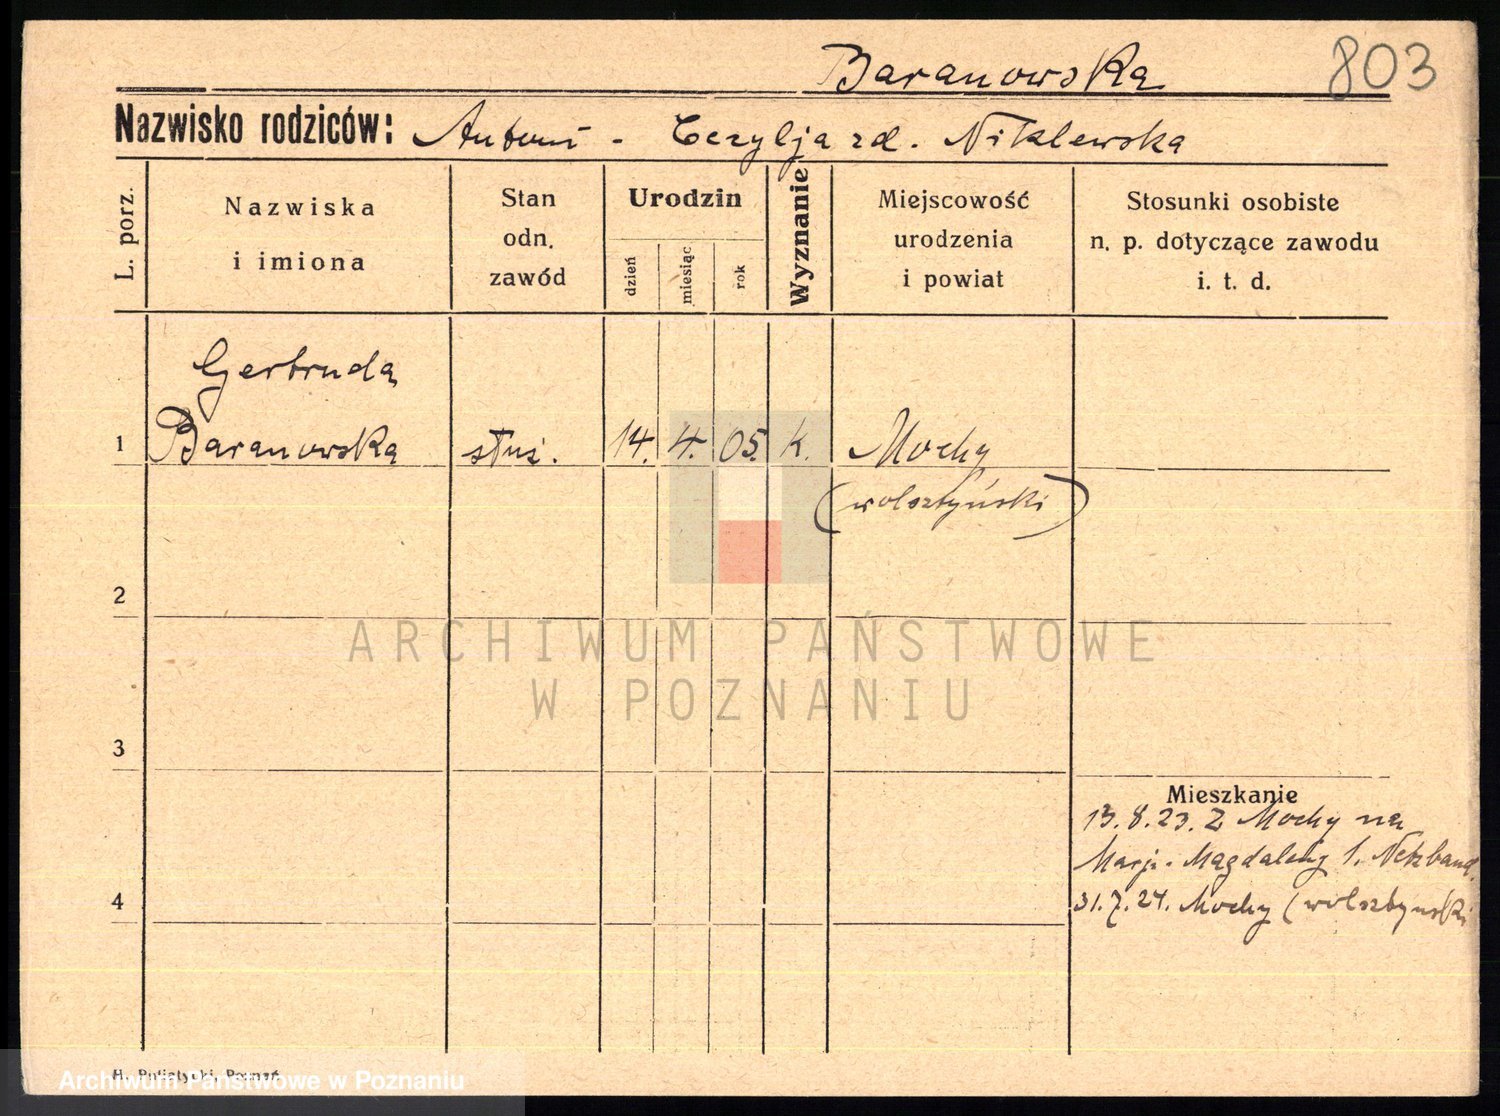 Baranowska
803
Nazwisko rodziców: Antoni - Cezylja zd. Niklewska
L. porz.
Nazwiska
i imiona
Stan
odn.
zawód
Urodzin
dzień
miesiąc
rok
Wyznanie
Miejscowość
urodzenia
i powiat
Stosunki osobiste
n. p. dotyczące zawodu
i. t. d.
Gertruda
1 Baranowska służ. 14. 4. 05. k. Mochy
(wolsztyński)
2
ARCHIWUM PAŃSTWOWE
W POZNANIU
3
Mieszkanie
13.8.23. Z Mochy na
Marji-Magdaleny 1. Netzband.
4
31.7.24. Mochy (wolsztyński
H. Putiatycki, Poznań
Archiwum Państwowe w Poznaniu